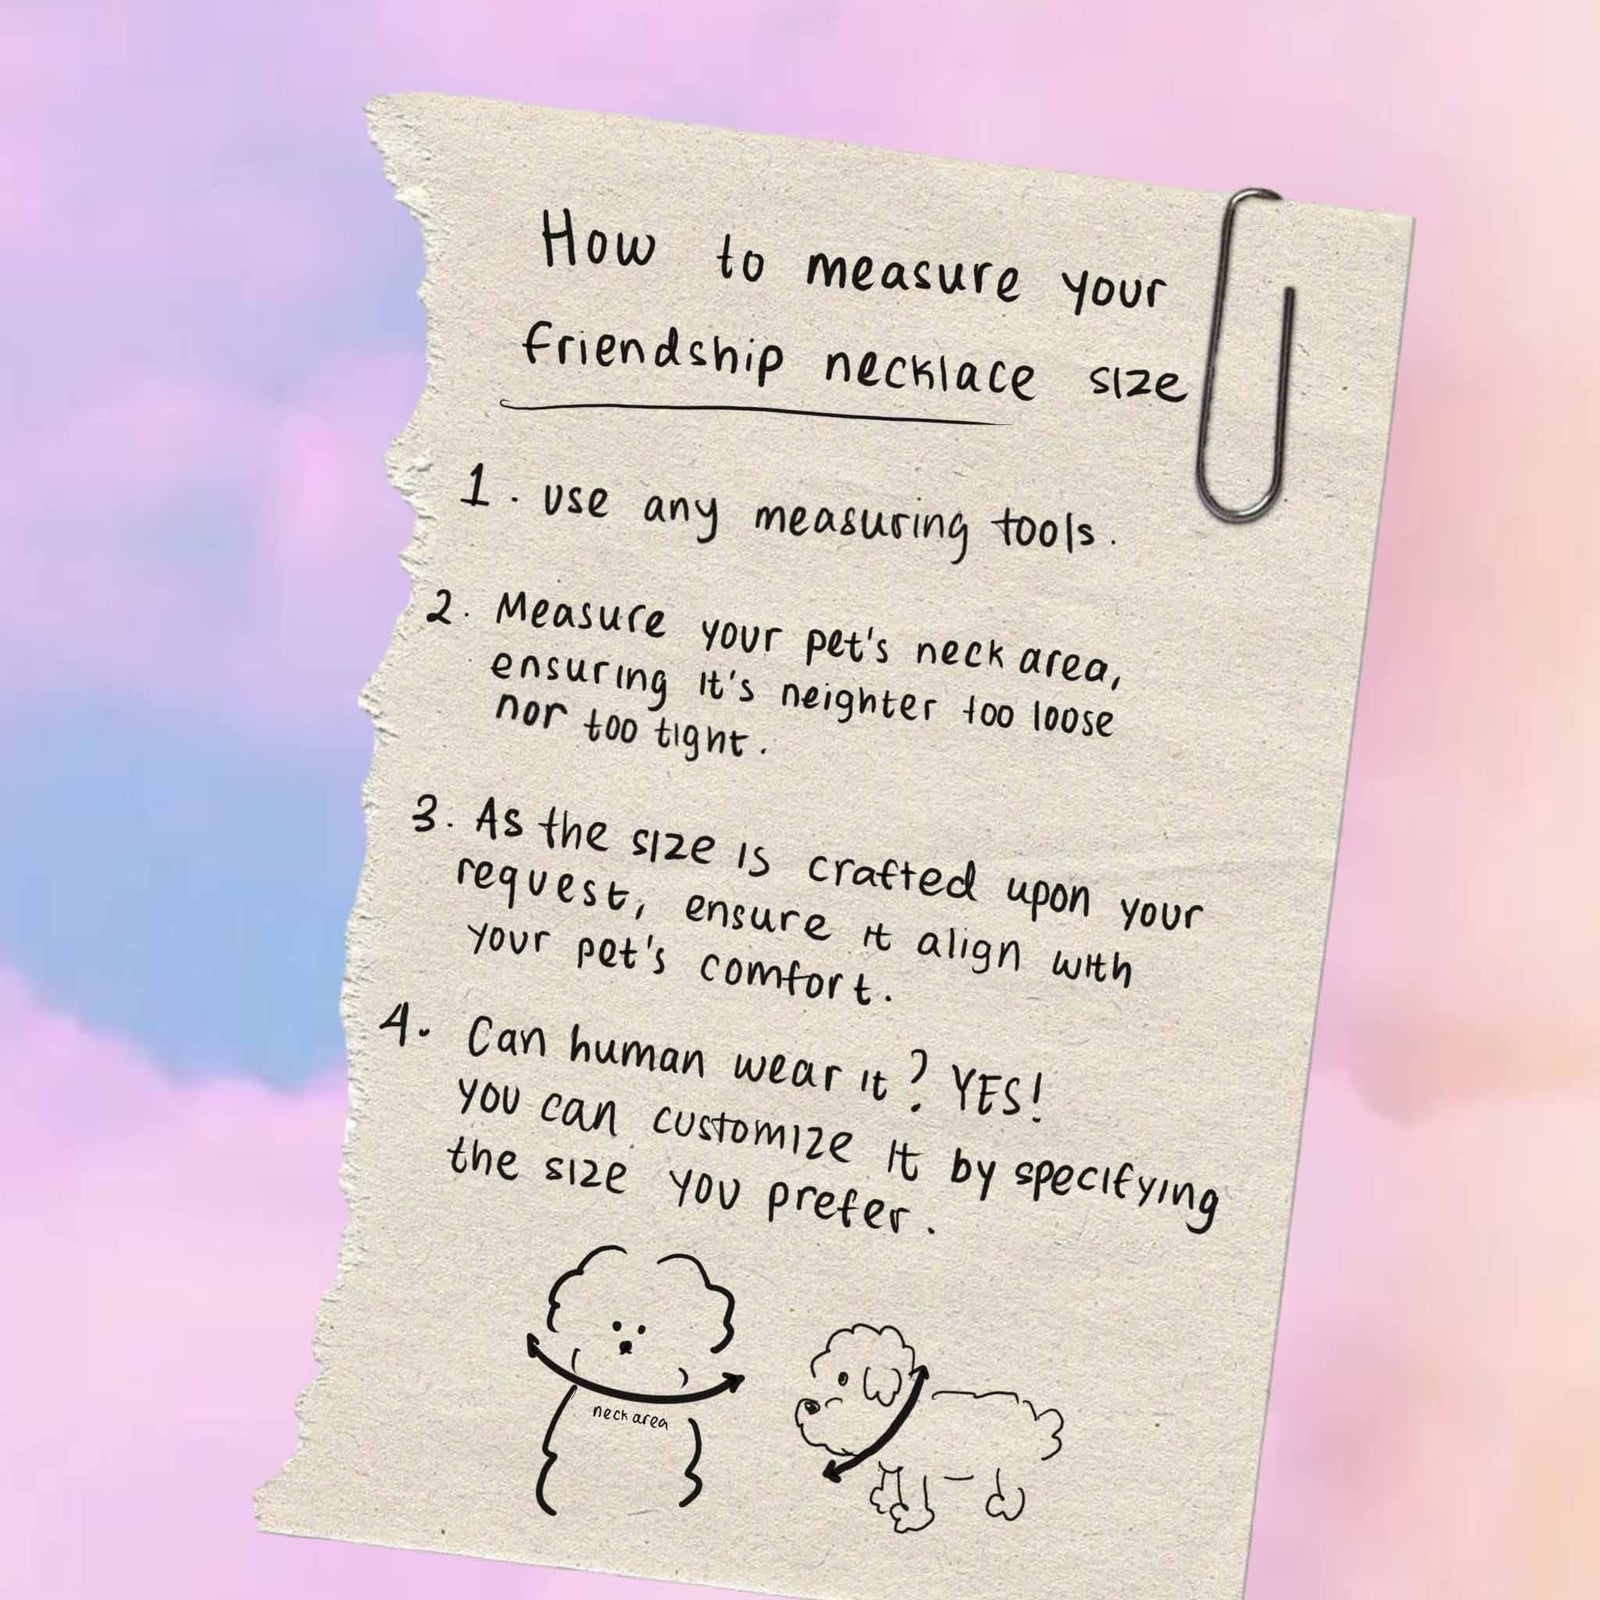 How to measure your
friendship necklace size
1. use any measuring tools.
2. Measure your pet's neck area,
ensuring it's neighter too loose
nor too tight.
3. As the size is crafted upon your
request, ensure it align with
your pet's comfort.
4. Can human wear it? YES!
you can customize it by specifying
the size you prefer.
neck area